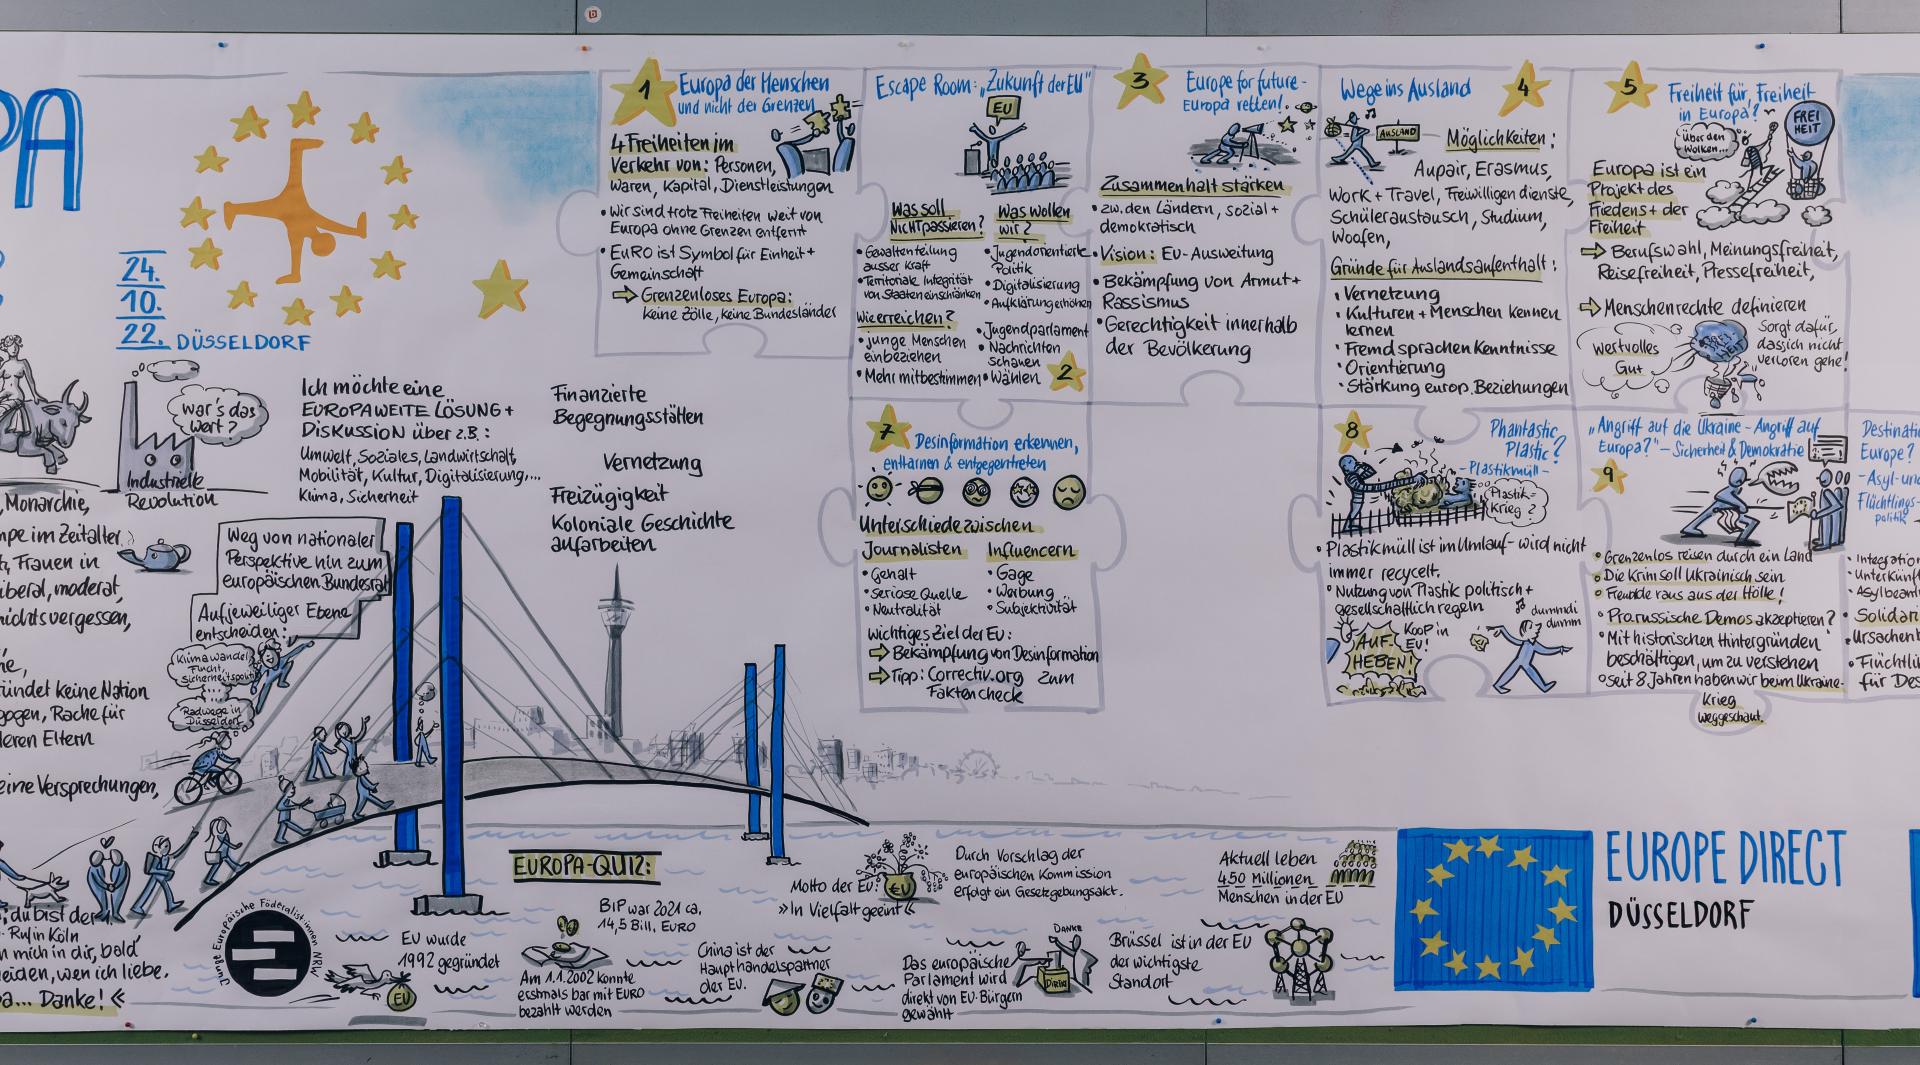 PA
24.
10.
22. DÜSSELDORF
War's das
Wert?
Industrielle
Revolution
Monarchie,
im Zeitalter
Frauen in
liberal, moderat,
nichts vergessen,
keine Nation
Rache für
deren Eltern
eine Versprechungen,
du bist der
Ruf in Köln
mich in dir, bald
wen ich liebe.
Danke! «
Ich möchte eine
EUROPAWEITE LÖSUNG +
DISKUSSION über z.B.:
Umwelt, Soziales, Landwirtschaft,
Mobilität, Kultur, Digitalisierung,...
Klima, Sicherheit
Finanzierte
Begegnungsstätten
Vernetzung
Freizügigkeit
Koloniale Geschichte
aufarbeiten
Weg von nationaler
Perspektive hin zum
europäischen Bundesrat
Auf jeweiliger Ebene
entscheiden:
Klimawandel
Flucht,
Sicherheitspolitik
Radwege in
Düsseldorf
1 Europa der Menschen
und nicht der Grenzen
4 Freiheiten im
Verkehr von: Personen,
Waren, Kapital, Dienstleistungen
• Wir sind trotz Freiheiten weit von
Europa ohne Grenzen entfernt
• EuRO ist Symbol für Einheit +
Gemeinschaft
Grenzenloses Europa:
keine Zölle, keine Bundesländer
Escape Room: „Zukunft der EU"
EU
Was soll
NICHT passieren?
• Gewaltenteilung
ausser Kraft
• Territoriale Integrität
von Staaten einschränken
Wie erreichen?
• junge Menschen
einbeziehen
• Mehr mitbestimmen
Was wollen
wir?
• Jugendorientierte
Politik
• Digitalisierung
• Aufklärung erhöhen
• Jugendparlament
• Nachrichten
schauen
• Wählen
2
3 Europe for future -
Europa retten!
Zusammenhalt stärken
• zw. den Ländern, sozial +
demokratisch
• Vision: EU-Ausweitung
• Bekämpfung von Armut +
Rassismus
• Gerechtigkeit innerhalb
der Bevölkerung
Wege ins Ausland 4
AUSLAND
Möglichkeiten:
Aupair, Erasmus,
Work + Travel, Freiwilligendienste,
Schüleraustausch, Studium,
Woofen,
Gründe für Auslandsaufenthalt:
• Vernetzung
• Kulturen + Menschen kennen
lernen
• Fremdsprachenkenntnisse
• Orientierung
• Stärkung europ. Beziehungen
5 Freiheit für, Freiheit
in Europa?
Über den
Wolken...
FREI
HEIT
Europa ist ein
Projekt des
Friedens + der
Freiheit
Berufswahl, Meinungsfreiheit,
Reisefreiheit, Pressefreiheit,
Menschenrechte definieren
Wertvolles
Gut
Sorgt dafür,
dass ich nicht
verloren gehe!
7 Desinformation erkennen,
entlarnen & entgegentreten
Unterschiede zwischen
Journalisten
• Gehalt
• Seriöse Quelle
• Neutralität
Influencern
• Gage
• Werbung
• Subjektivität
Wichtiges Ziel der EU:
Bekämpfung von Desinformation
Tipp: Correctiv.org zum
Faktencheck
8 Phantastic
Plastic?
- Plastikmüll -
Plastik-
Krieg?
• Plastikmüll ist im Umlauf - wird nicht
immer recycelt.
• Nutzung von Plastik politisch +
gesellschaftlich regeln
AUF
HEBEN!
Koop in
EU!
dummdi
dumm
„Angriff auf die Ukraine - Angriff auf
Europa?" - Sicherheit & Demokratie
9
• Grenzenlos reisen durch ein Land
• Die Krim soll Ukrainisch sein
• Freunde raus aus der Hölle!
• Prorussische Demos akzeptieren?
• Mit historischen Hintergründen
beschäftigen, um zu verstehen
• seit 8 Jahren haben wir beim Ukraine-
Krieg
weggeschaut.
Europe?
- Asyl- und
Flüchtlings-
politik
• Asylbeam
für Des
EUROPA-QUIZ:
Junge Europäische Föderalist:innen NRW
EU wurde
1992 gegründet
EU
BIP war 2021 ca.
14,5 Bill. EURO
Am 1.1.2002 konnte
erstmals bar mit EURO
bezahlt werden
China ist der
Haupthandelspartner
der EU.
Motto der EU:
»In Vielfalt geeint«
€U
Durch Vorschlag der
europäischen Kommission
erfolgt ein Gesetzgebungsakt.
Das europäische
Parlament wird
direkt von EU-Bürgern
gewählt
DANKE
Brüssel ist in der EU
der wichtigste
Standort
Aktuell leben
450 Millionen
Menschen in der EU
EUROPE DIRECT
DÜSSELDORF